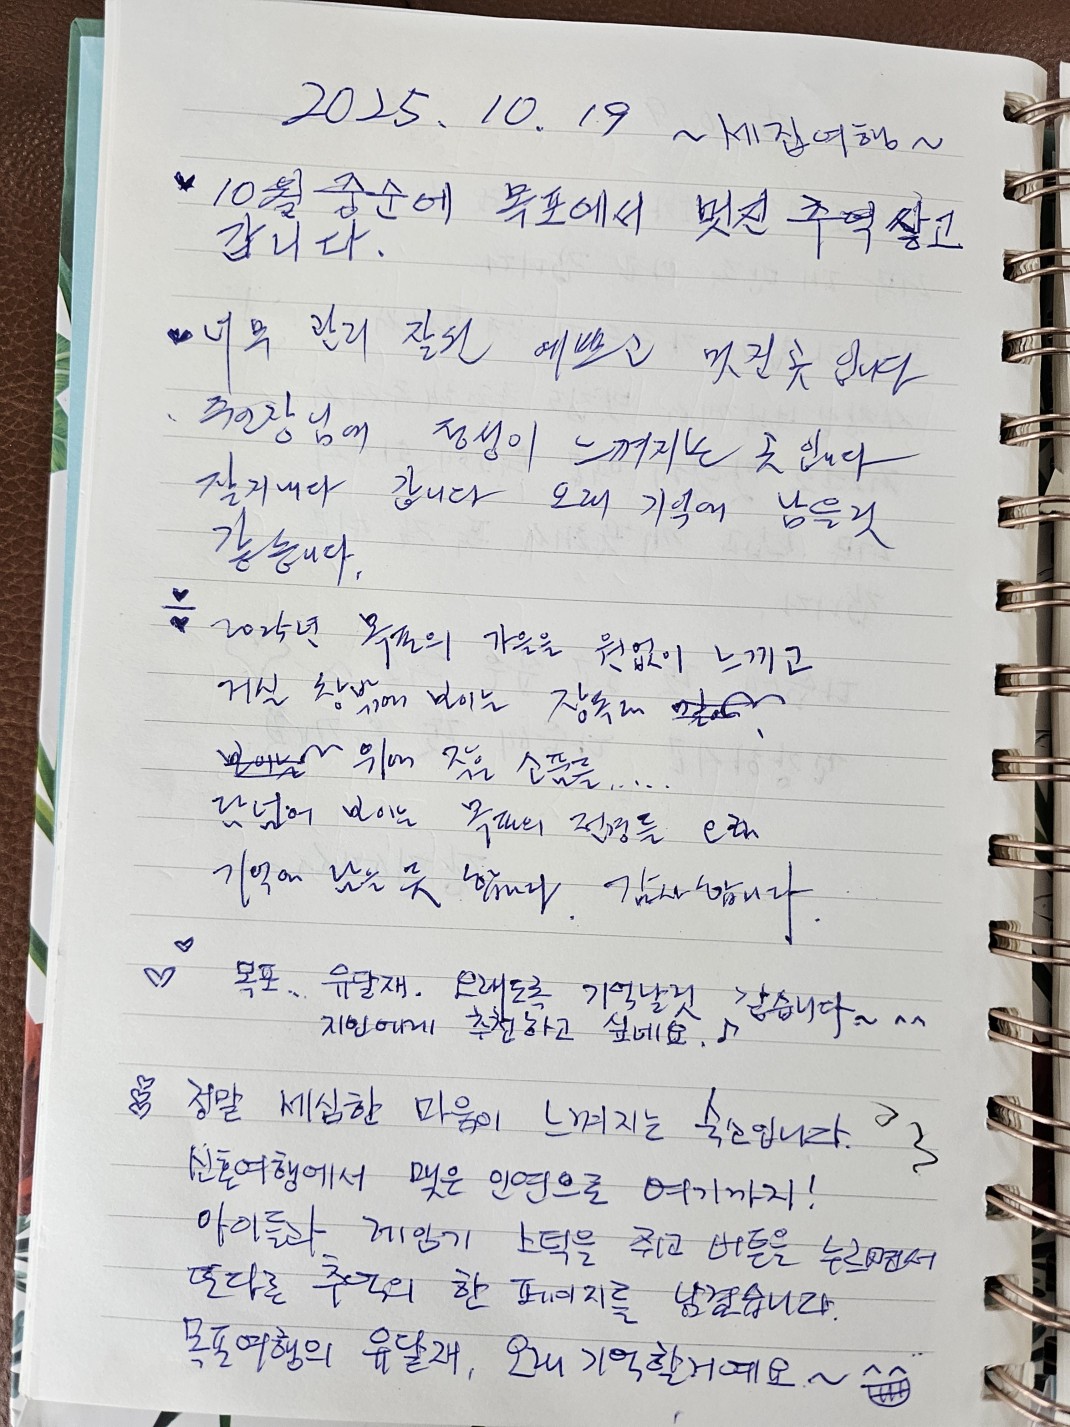 2025. 10. 19 ~세집여행~
10월 중순에 목포에서 멋진 추억 쌓고
갑니다.
너무 관리 잘된 예쁘고 멋진곳 입니다
주인장님에 정성이 느껴지는 곳입니다
잘지내다 갑니다 오래 기억에 남을것
같습니다.
2025년 목포의 가을을 원없이 느끼고
거실 창밖에 보이는 장독대
위에 작은 소품들.....
담넘어 보이는 목포의 전경들 오래
기억에 남을 듯 합니다. 감사합니다.
목포.. 유달재. 오래도록 기억날것 같습니다~ ^^
지인에게 추천하고 싶네요.♪
정말 세심한 마음이 느껴지는 숙소입니다.
신혼여행에서 맺은 인연으로 여기까지!
아이들과 게임기 스틱을 쥐고 버튼을 누르면서
또다른 추억의 한 페이지를 남겼습니다.
목포여행의 유달재, 오래 기억할거예요~